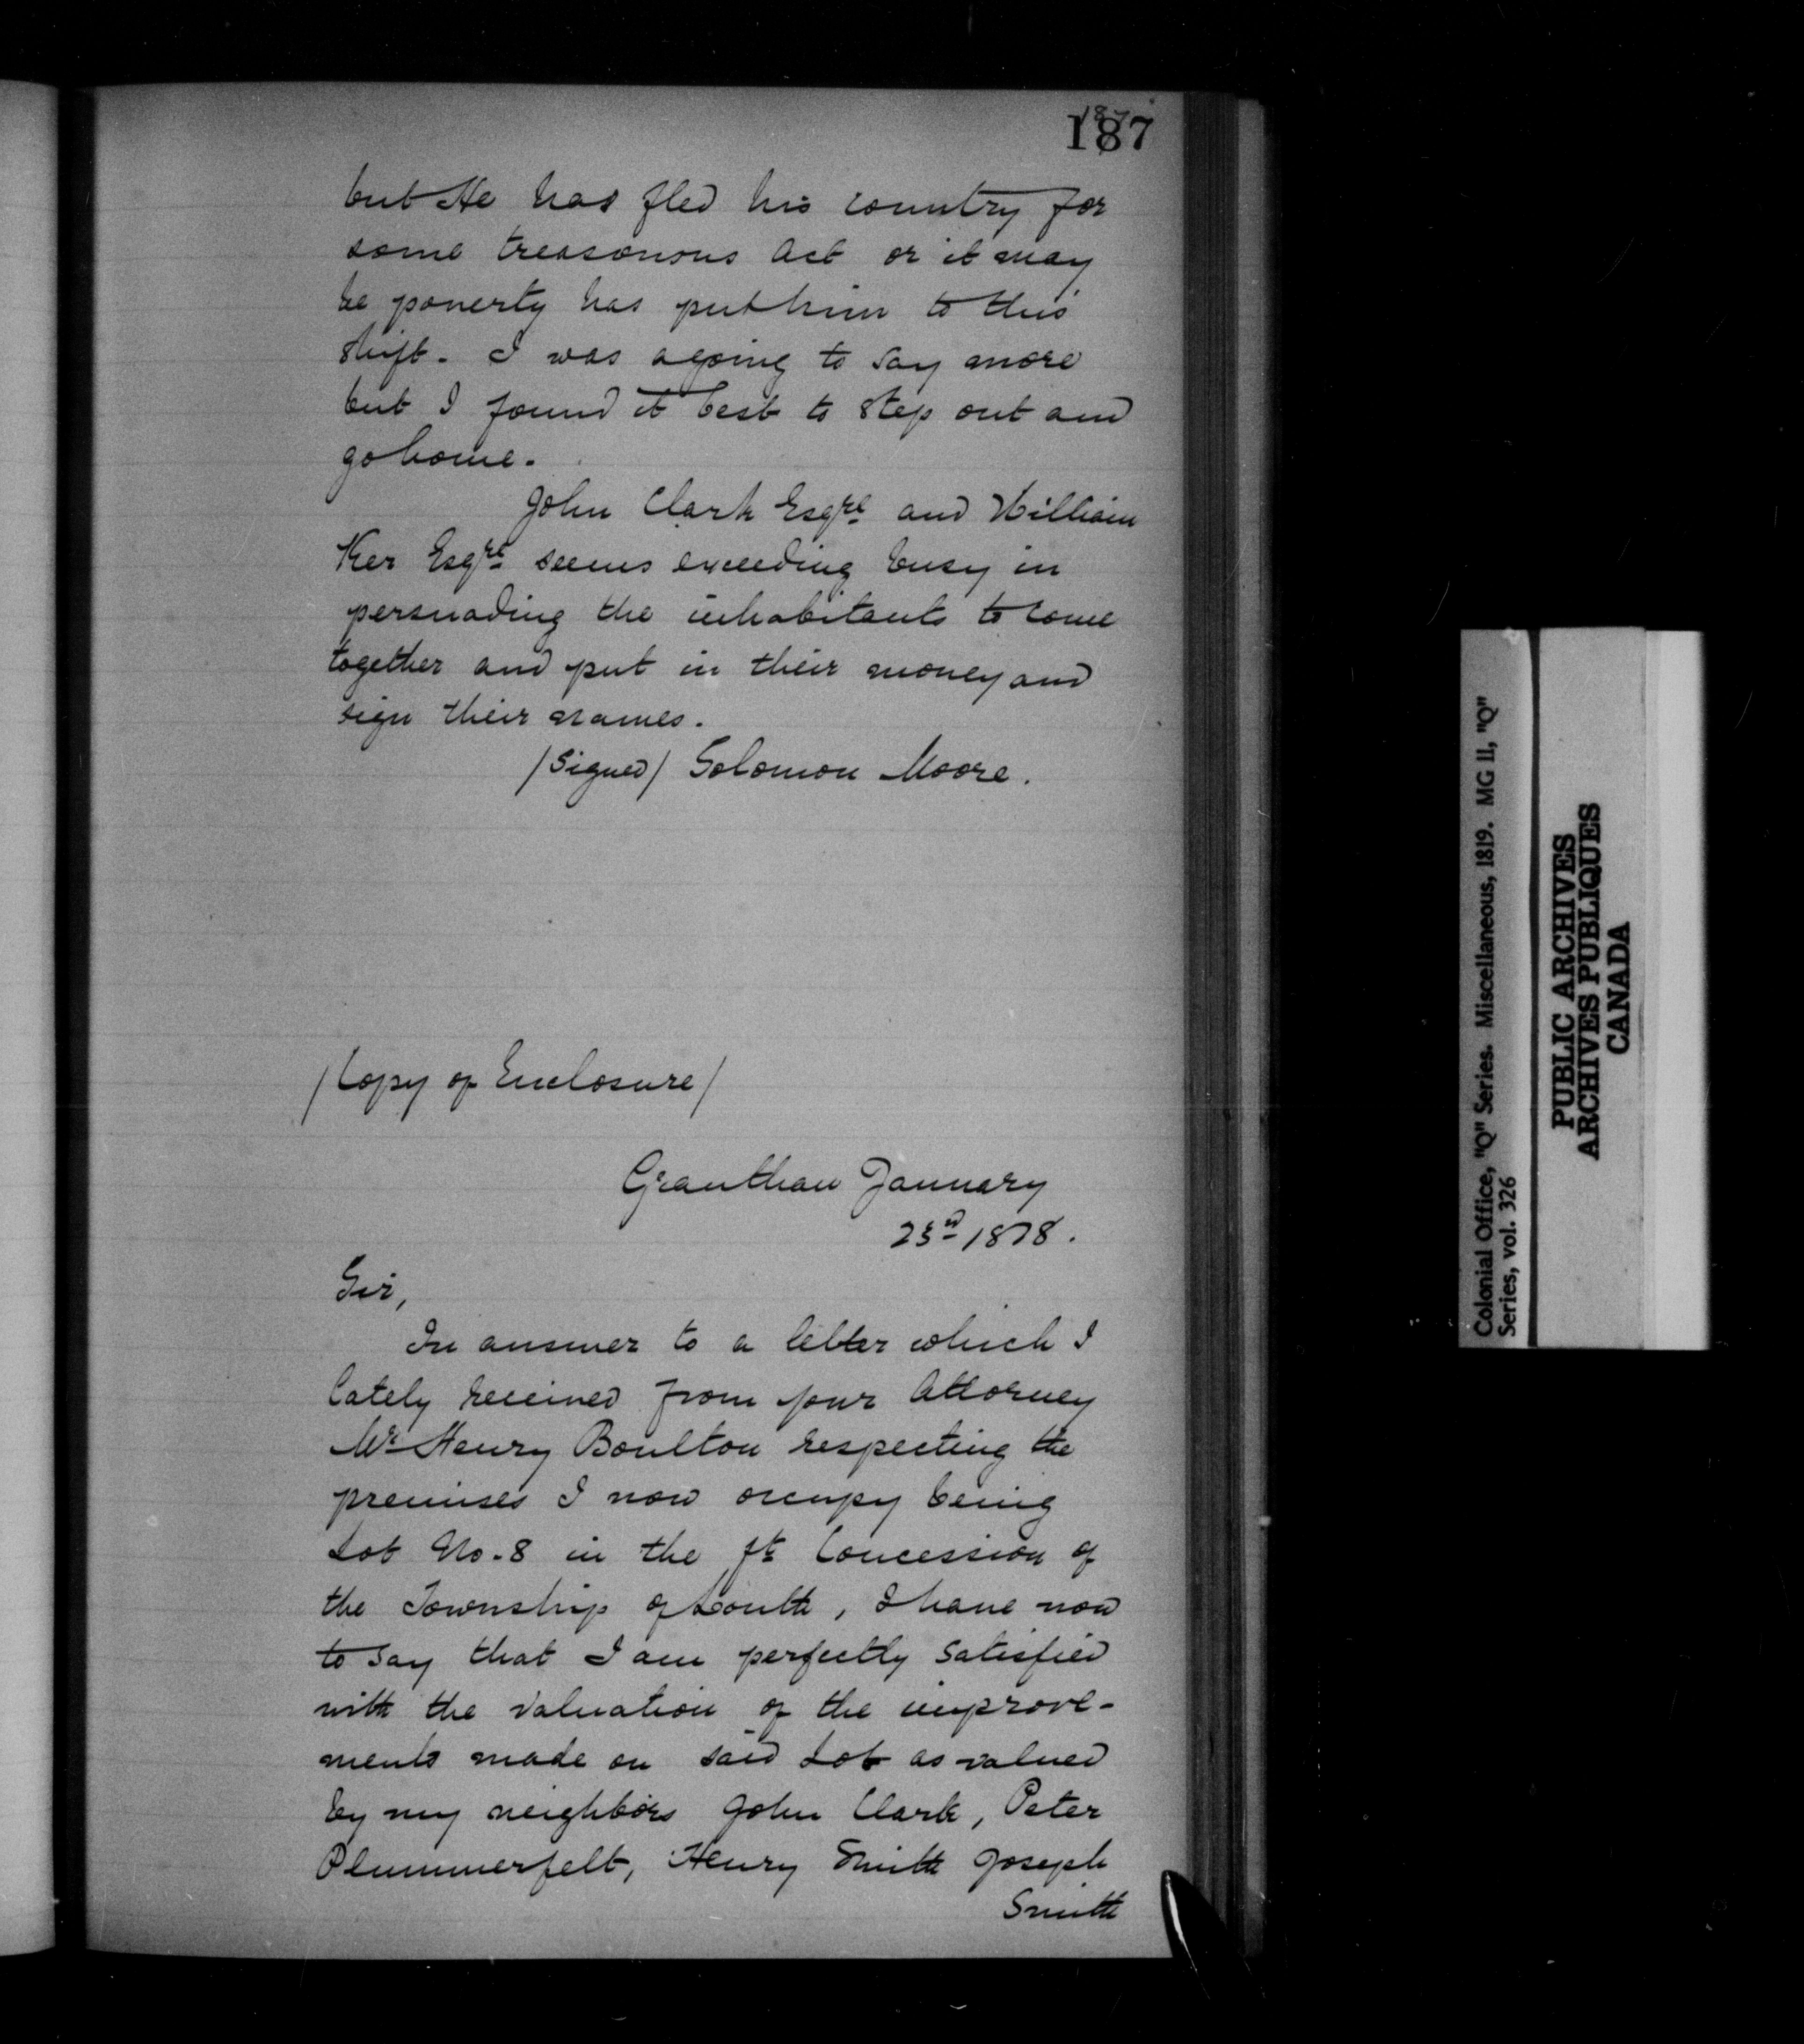 187
187
but He has fled his country for
some treasonous act or it may
be poverty has put him to this
shift. I was agoing to say more
but I found it best to step out and
go home.
John Clark Esqre and William
Ker Esqre seems exceeding busy in
persuading the inhabitants to come
together and put in their money and
sign their names.
/Signed/ Solomon Moore.
/Copy of Enclosure/
Grantham January
23d 1878.
Sir,
In answer to a letter which I
lately received from your Attorney
Mr Henry Boulton respecting the
premises I now occupy being
Lot No. 8 in the Concession of
the Township of Louth, I have now
to say that I am perfectly satisfied
with the valuation of the improve-
ments made on said Lot as valued
by my neighbors John Clark, Peter
Plummerfelt, Henry Smith Joseph
Smith
Colonial Office, "Q" Series. Miscellaneous, 1819. MG 11, "Q"
Series, vol. 326
PUBLIC ARCHIVES
ARCHIVES PUBLIQUES
CANADA